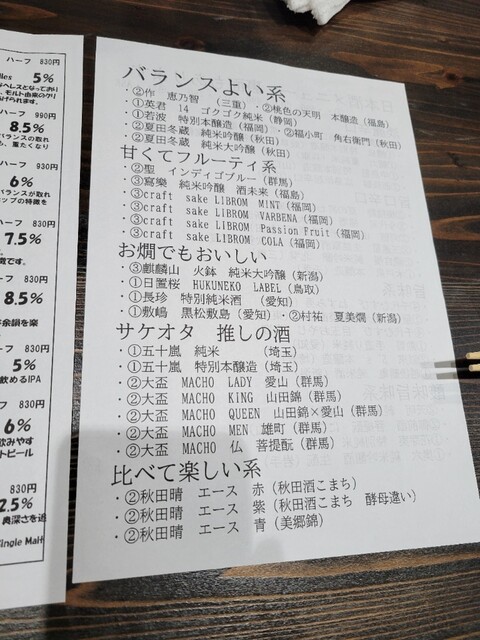 ハーフ 830円
5%
ハーフ 990円
8.5%
ハーフ 930円
6%
ハーフ 830円
7.5%
ハーフ 830円
8.5%
余韻を楽
ハーフ 830円
5%
飲めるIPA
6%
飲みやす
トビール
830円
2.5%
奥深さを追
Single Malt
バランスよい系
・②作 恵乃智 (三重)・②桃色の天明 本醸造(福島)
・①英君 14 ゴクゴク純米(静岡)
・①若波 特別本醸造(福岡)・②福小町 角右衛門(秋田)
・②夏田冬蔵 純米吟醸(秋田)
・②夏田冬蔵 純米大吟醸(秋田)
甘くてフルーティ系
・②聖 インディゴブルー(群馬)
・③寫樂 純米吟醸 酒未来(福島)
・③craft sake LIBROM MINT(福岡)
・③craft sake LIBROM VARBENA(福岡)
・③craft sake LIBROM Passion Fruit(福岡)
・③craft sake LIBROM COLA(福岡)
お燗でもおいしい
・③麒麟山 火鉢 純米大吟醸(新潟)
・①日置桜 HUKUNEKO LABEL(鳥取)
・①長珍 特別純米酒 (愛知)
・①敷嶋 黒松敷島(愛知)・②村祐 夏美燗(新潟)
サケオタ 推しの酒
・①五十嵐 純米 (埼玉)
・①五十嵐 特別本醸造(埼玉)
・②大盃 MACHO LADY 愛山(群馬)
・②大盃 MACHO KING 山田錦(群馬)
・②大盃 MACHO QUEEN 山田錦×愛山(群馬)
・②大盃 MACHO MEN 雄町(群馬)
・②大盃 MACHO 仏 菩提酛(群馬)
比べて楽しい系
・②秋田晴 エース 赤(秋田酒こまち)
・②秋田晴 エース 紫(秋田酒こまち 酵母違い)
・②秋田晴 エース 青(美郷錦)